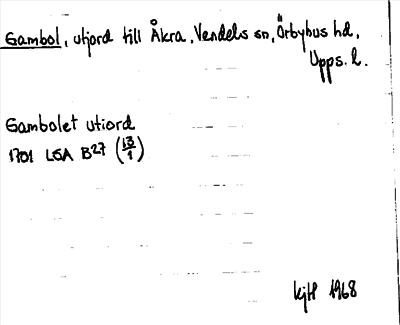 Gambol, utjord till Åkra, Vendels sn, Örbyhus hd,
Upps. l.
Gambolet utiord
1701 LSA B27 (13/1)
kjH 1968